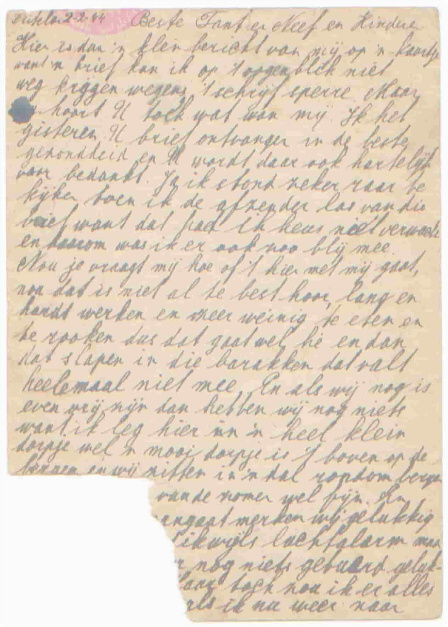 2-2-44 Beste Tante en Neef en Kindren
Hier es dan 'n klein bericht van mij op 'n kaartje
want 'n brief kan ik op 't ogenblik niet
weg krijgen wegens 't schrijf sperre. Maar
hoort U toch wat van mij. Ik het
gisteren U brief ontvangen in de beste
gezondheid en U wordt daar ook hartelijk
voor bedankt. Ja ik stond zeker raar te
kijken toen ik de afzender las van die
brief want dat had ik heus niet verwacht
en daarom was ik er ook zoo blij mee.
Nou je vraagt mij hoe of 't hier met mij gaat,
nou dat is niet al te best hoor, lang en
hardt werken en zeer weinig te eten en
te rooken dus dat gaat wel hé en dan
dat slapen in die barakken dat valt
heelemaal niet mee. En als wij nog is
even vrij zijn dan hebben wij nog niets
want ik leg hier in 'n heel klein
dorpje wel 'n mooi dorpje is 't boven op de
en wij zitten in 'n dal rondom bergen
van de zomer wel fijn. En
aangaat merken wij gelukkig
dikwijls luchtalarm maar
nog niets gebeurd geluk-
toch nou ik er alles
als ik nu weer naar